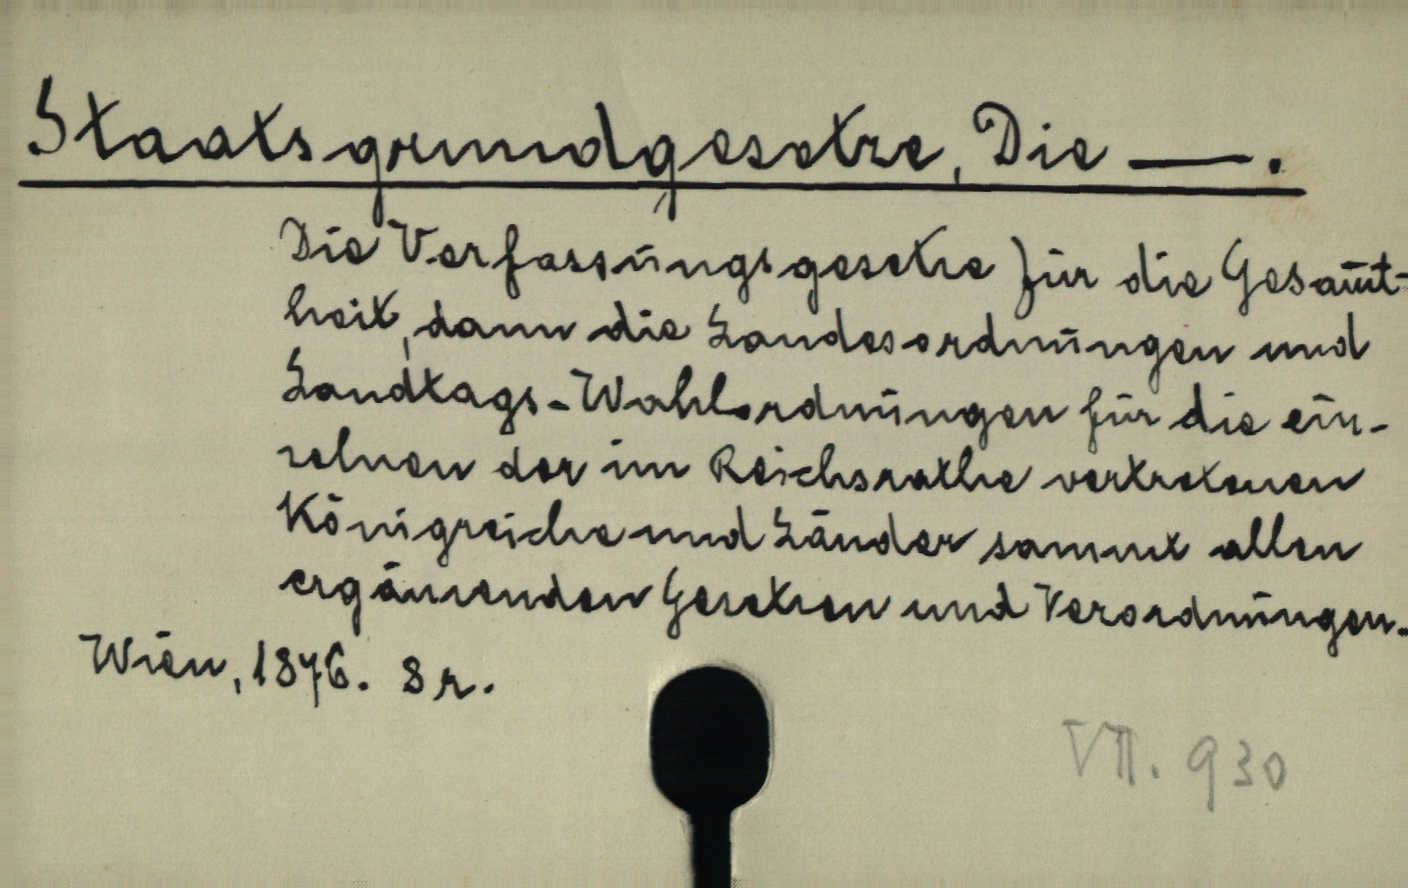 Staatsgrundgesetze, Die —.
Die Verfassungsgesetze für die Gesam̄t-
heit, dann die Landesordnungen und
Landtags-Wahlordnungen für die ein-
zelnen der im Reichsrathe vertretenen
Königreiche und Länder sammt allen
ergänzenden Gesetzen und Verordnungen.
Wien, 1876. 8r.
VII. 930